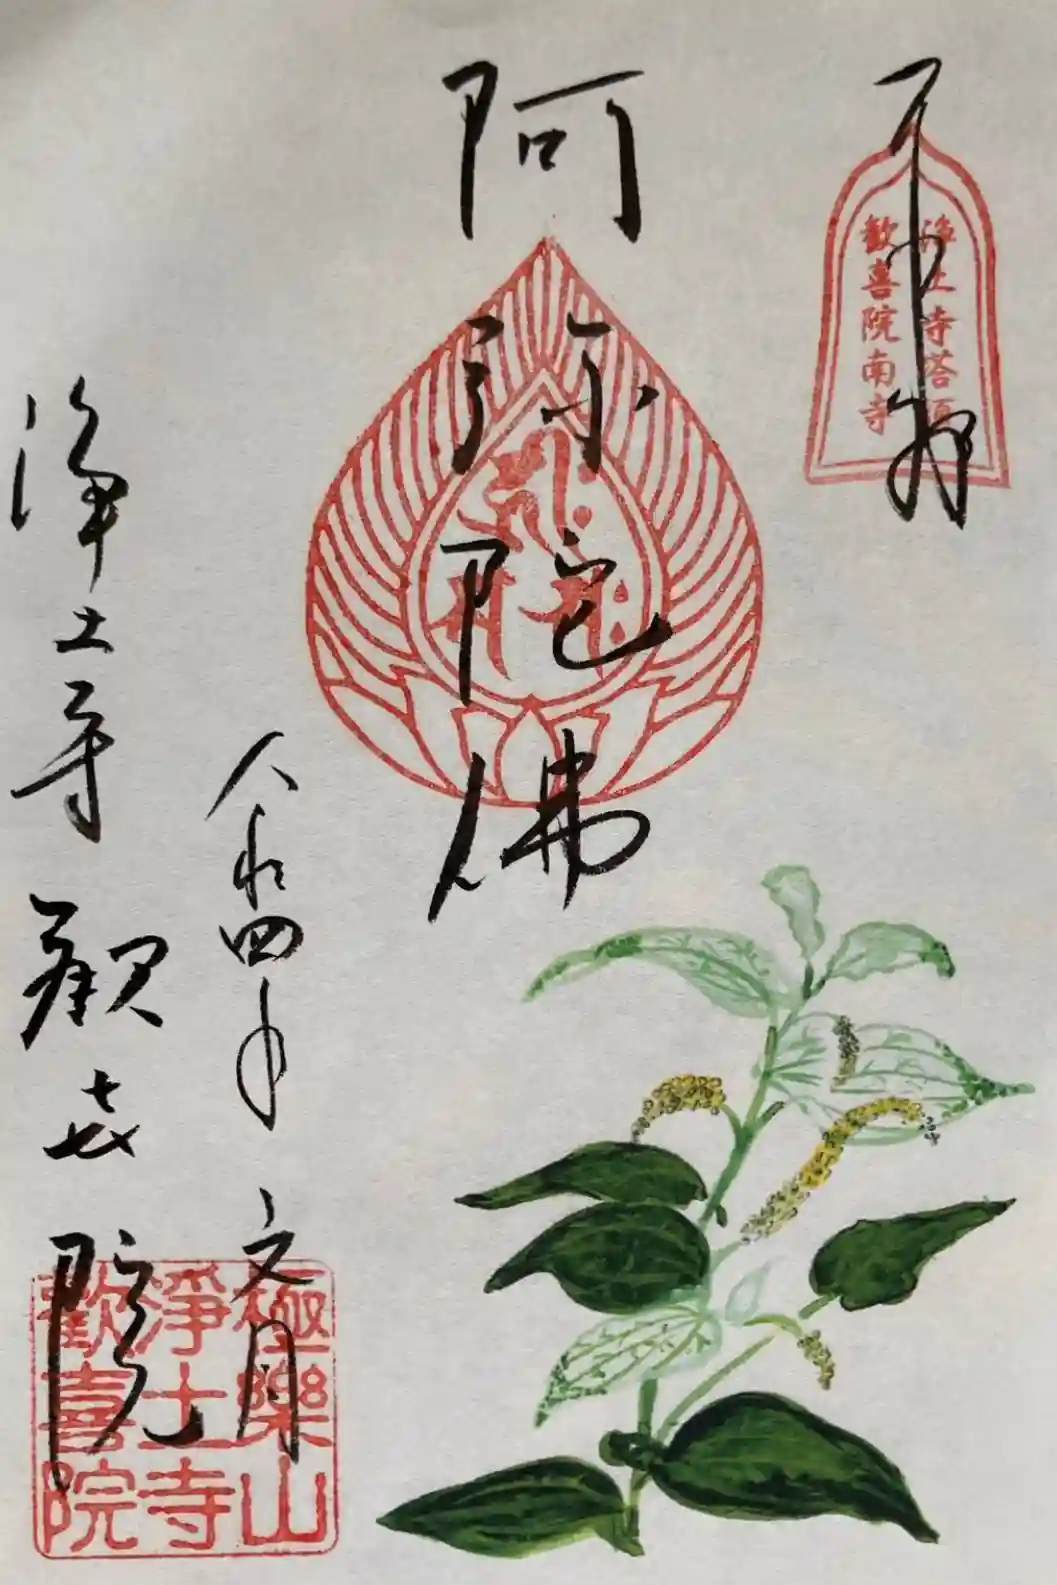 奉拝
浄土寺塔頭
歓喜院南寺
阿弥陀佛
令和四年 文月
浄土寺 歓喜院
極樂山
淨土寺
歡喜院